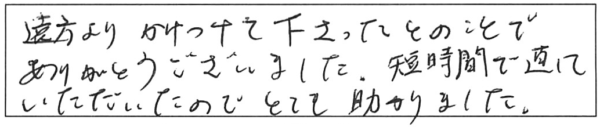 遠方より かけつけて下さったとのことで
ありがとうございました。短時間で直して
いただいたので とても 助かりました。